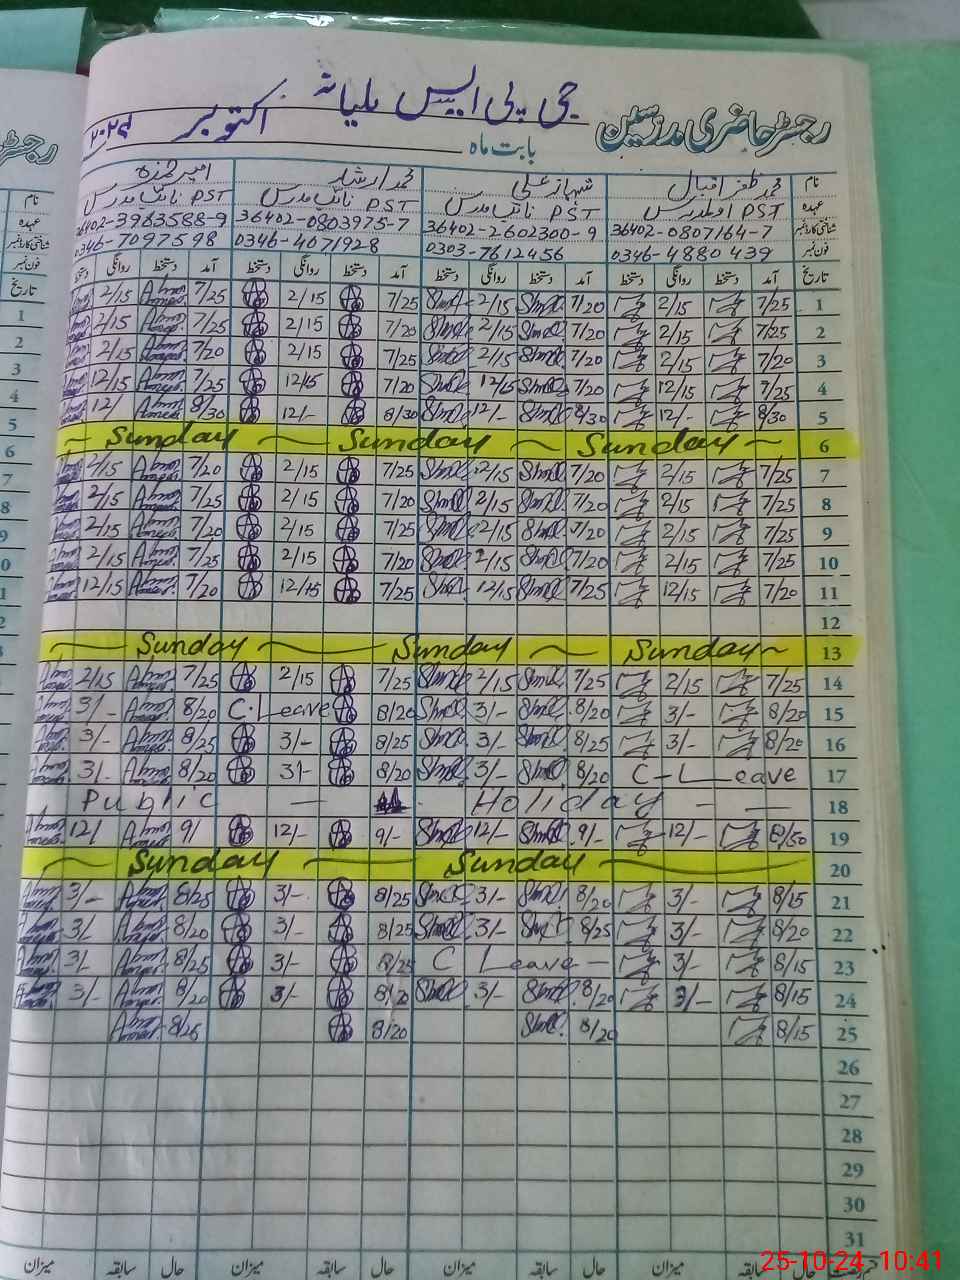 جی پی ایس ملیانہ
رجسٹر حاضری مدرسین بابت ماہ اکتوبر ۲۰۲۴
نام محمد ظفر اقبال شہباز علی محمد ارشد امیر حمزہ
عہدہ PST اول مدرس PST نائب مدرس PST نائب مدرس PST نائب مدرس
شناختی کارڈ نمبر 36402-0807164-7 36402-2602300-9 36402-0803975-7 36402-3983588-9
فون نمبر 0346-4880439 0303-7612456 0346-4071928 0346-7097598
تاریخ آمد دستخط روانگی دستخط آمد دستخط روانگی دستخط آمد دستخط روانگی دستخط آمد دستخط روانگی دستخط
1 7/25 2/15 7/20 2/15 7/25 2/15 7/25 2/15
2 7/25 2/15 7/20 2/15 7/20 2/15 7/25 2/15
3 7/20 2/15 7/20 2/15 7/25 2/15 7/20 2/15
4 7/25 12/15 7/20 12/15 7/20 12/15 7/25 12/15
5 8/30 12/- 8/30 12/- 8/30 12/- 8/30 12/
6 Sunday Sunday Sunday
7 7/25 2/15 7/20 2/15 7/25 2/15 7/20 2/15
8 7/25 2/15 7/20 2/15 7/20 2/15 7/25 2/15
9 7/25 2/15 7/20 2/15 7/25 2/15 7/20 2/15
10 7/25 2/15 7/20 2/15 7/20 2/15 7/25 2/15
11 7/20 12/15 7/25 12/15 7/25 12/15 7/20 12/15
12
13 Sunday Sunday Sunday
14 7/25 2/15 7/25 2/15 7/25 2/15 7/25 2/15
15 8/20 3/- 8/20 3/- 8/20 C.Leave 8/20 3/-
16 8/20 3/- 8/25 3/- 8/25 3/- 8/25 3/-
17 C-Leave 8/20 3/- 8/20 3/- 8/20 3/-
18 Public — Holiday - —
19 12/- 9/- 12/- 9/- 12/- 9/ 12/
20 Sunday Sunday
21 8/15 3/- 8/20 3/- 8/25 3/- 8/25 3/-
22 8/20 3/- 8/25 3/- 8/25 3/- 8/20 3/-
23 8/15 3/- C Leave - 8/25 3/- 8/25 3/-
24 8/15 3/- 8/20 3/- 8/20 3/- 8/20 3/-
25 8/15 8/20 8/20 8/25
26
27
28
29
30
31
حال سابقہ میزان حال سابقہ میزان حال سابقہ میزان
25-10-24 10:41